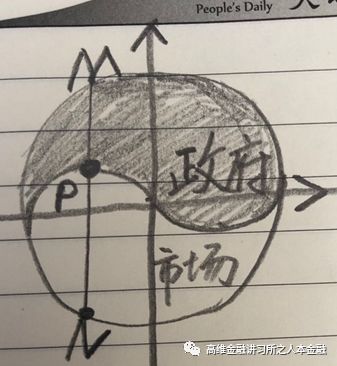 People's Daily
M
政府
P
市场
N
高维金融讲习所之人本金融